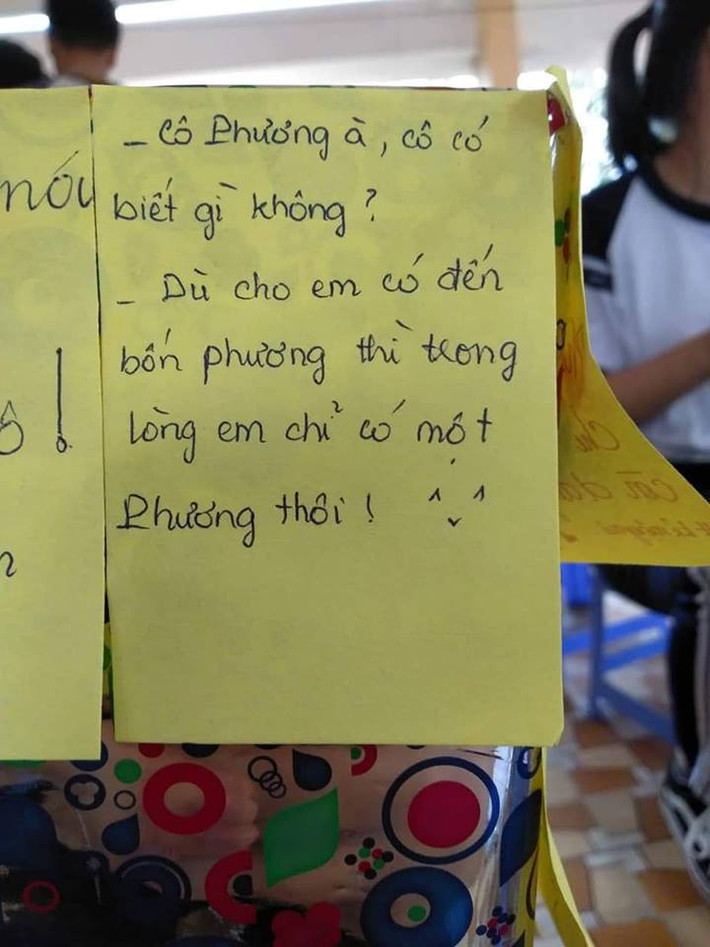 - Cô Phương à, cô có
biết gì không?
- Dù cho em có đến
bốn phương thì trong
lòng em chỉ có một
Phương thôi! ^ ^